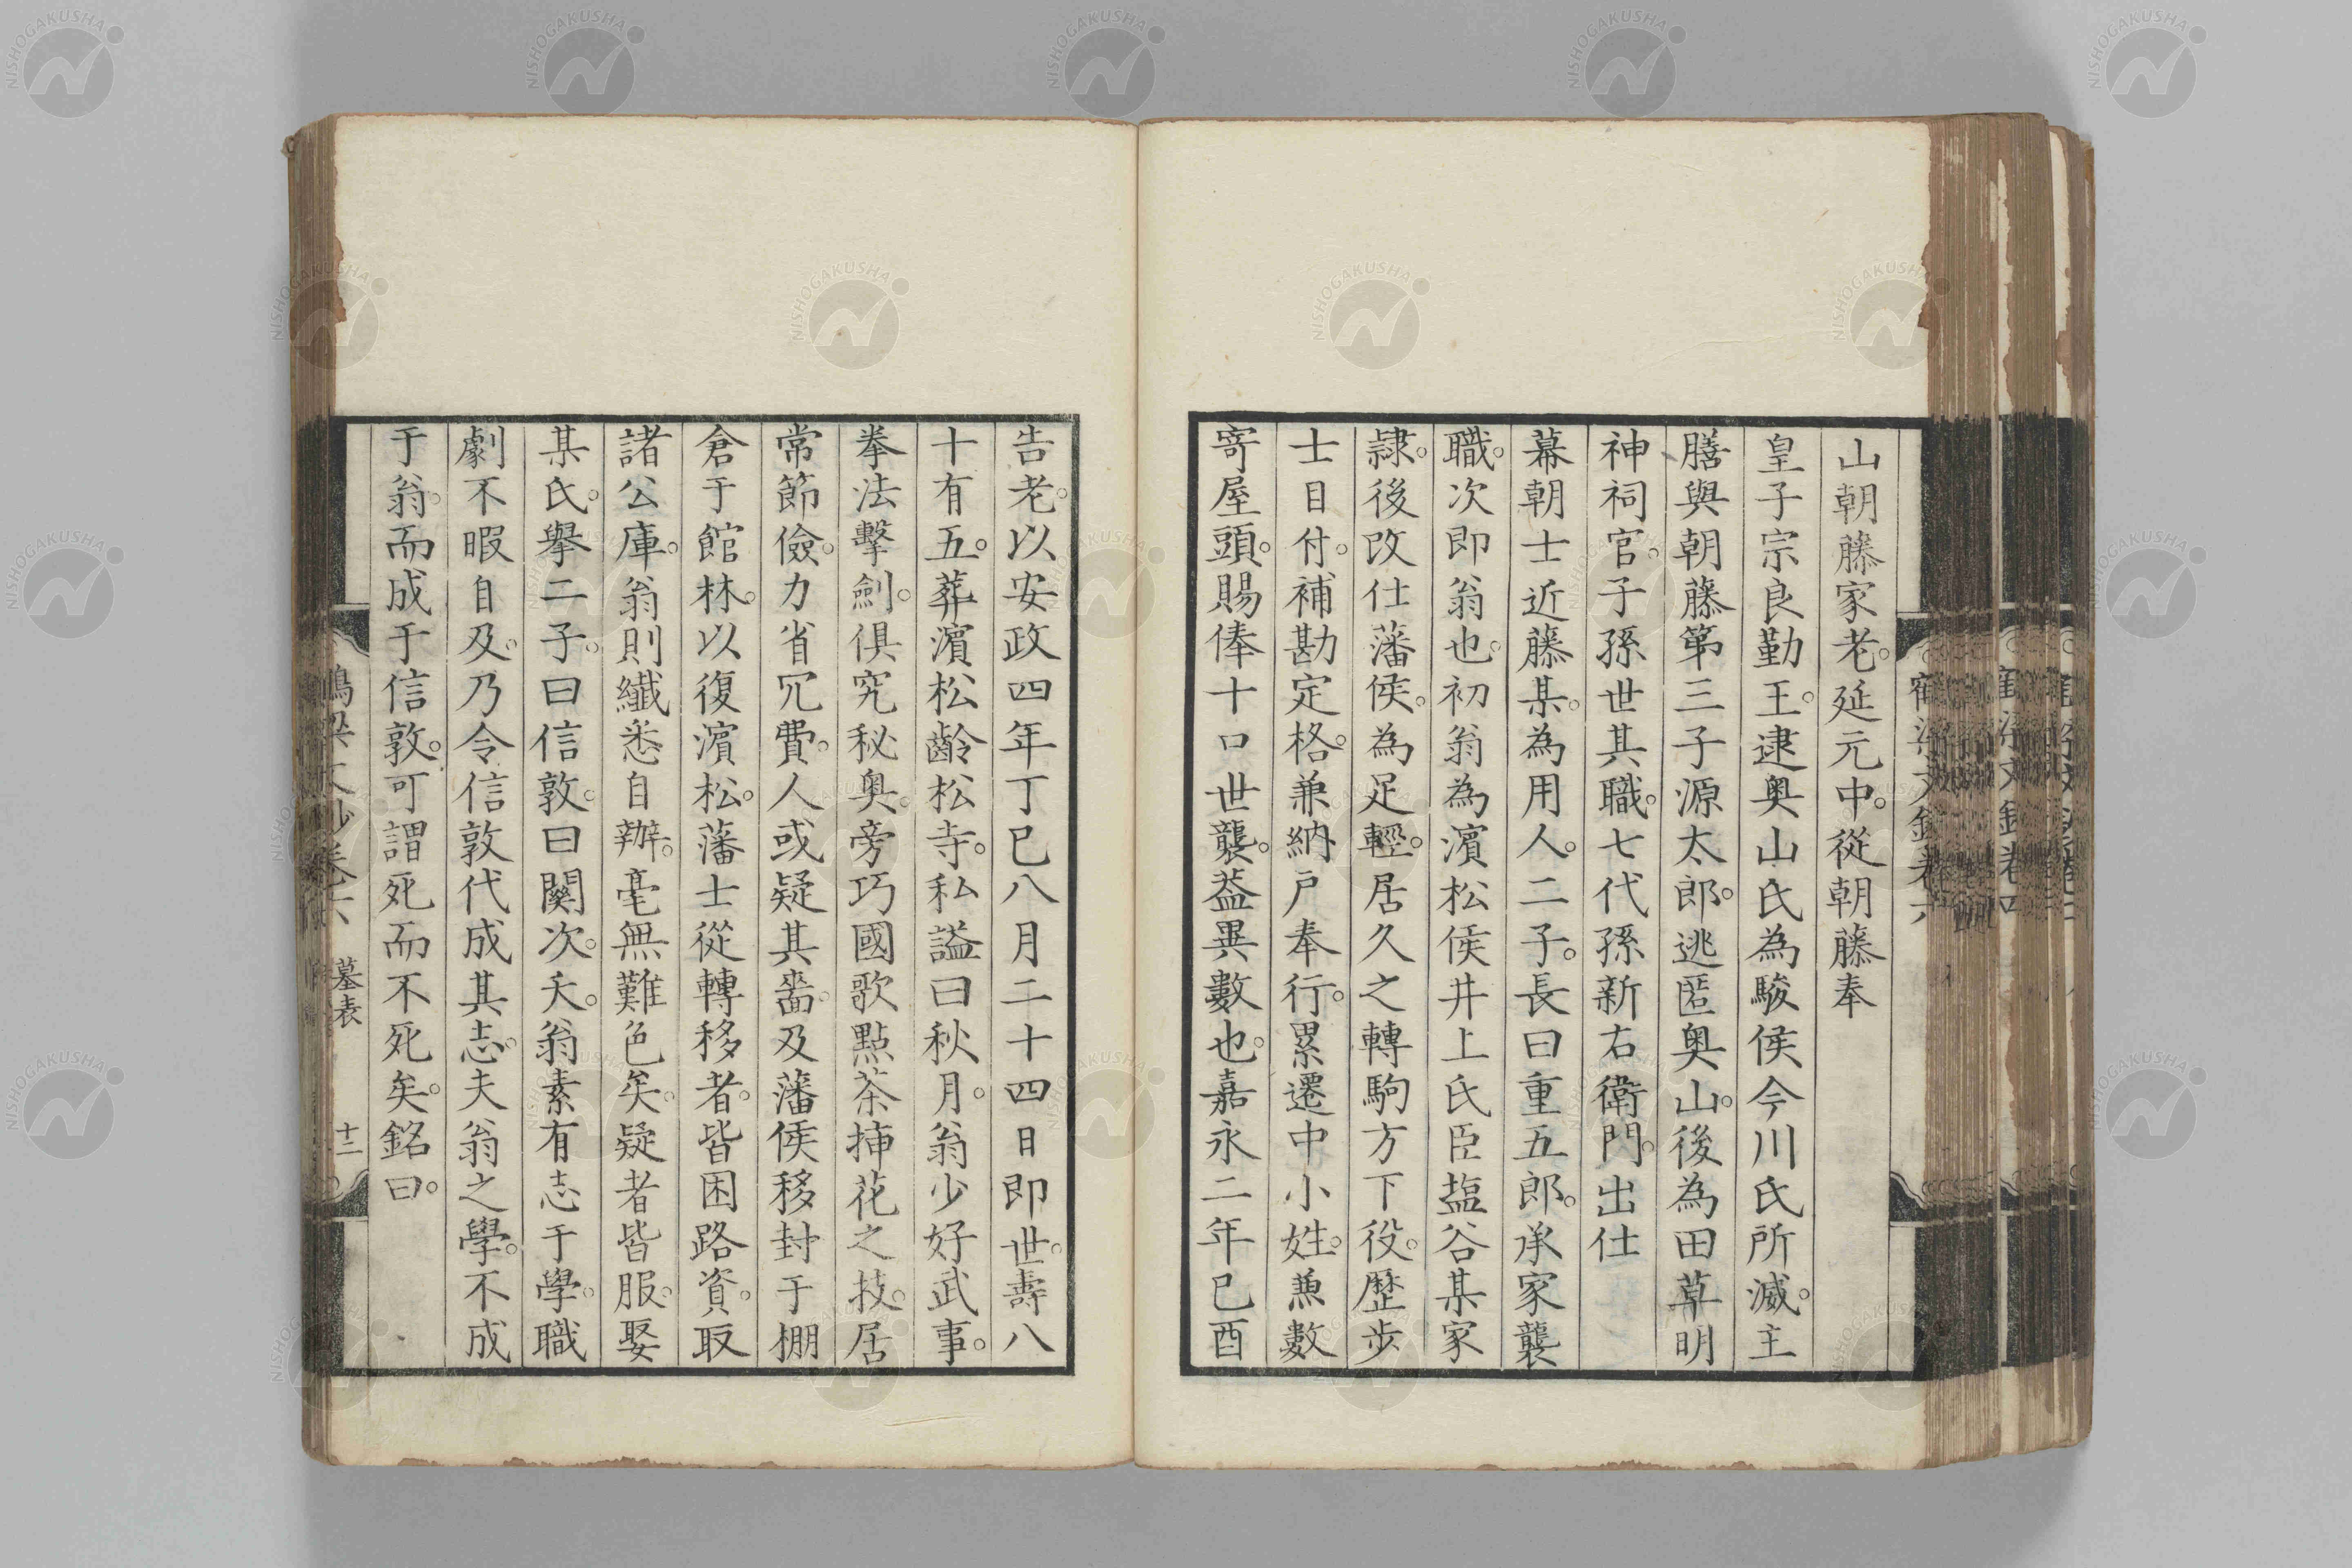 山朝藤家老。延元中。從朝藤奉
皇子宗良勤王。逮奥山氏為駿侯今川氏所滅。主
膳與朝藤第三子源太郎。逃匿奥山。後為田草明
神祠官。子孫世其職。七代孫新右衛門。出仕
幕朝士近藤某。為用人。二子。長曰重五郎。承家襲
職。次即翁也。初翁為濱松侯井上氏臣塩谷某家
隷。後改仕藩侯。為足輕。居久之轉駒方下役。歴歩
士目付。補勘定格。兼納戸奉行。累遷中小姓。兼數
寄屋頭。賜俸十口世襲。葢異數也。嘉永二年己酉
告老。以安政四年丁巳八月二十四日即世。壽八
十有五。葬濱松齢松寺。私謚曰秋月。翁少好武事。
拳法擊劍。俱究秘奥。旁巧國歌點茶挿花之技。居
常節儉。力省冗費。人或疑其嗇。及藩侯移封于棚
倉于館林。以復濱松。藩士從轉移者。皆困路資。取
諸公庫。翁則纎悉自辦。毫無難色矣。疑者皆服。娶
某氏。擧二子。曰信敦。曰關次。夭。翁素有志于學。職
劇不暇自及。乃令信敦代成其志。夫翁之學。不成
于翁。而成于信敦。可謂死而不死矣。銘曰。
墓表
十二